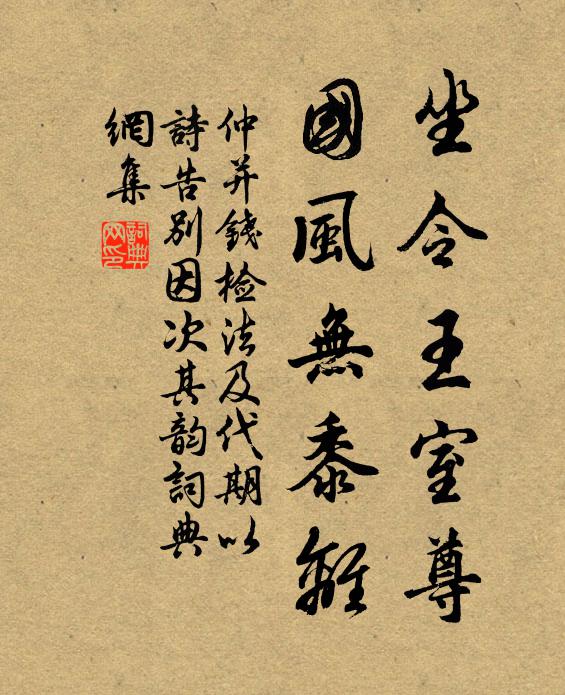 坐令王室尊
國風無黍離
仲并錢检法及代期以
詩告别因次其韵詞典
網集
詞典网印